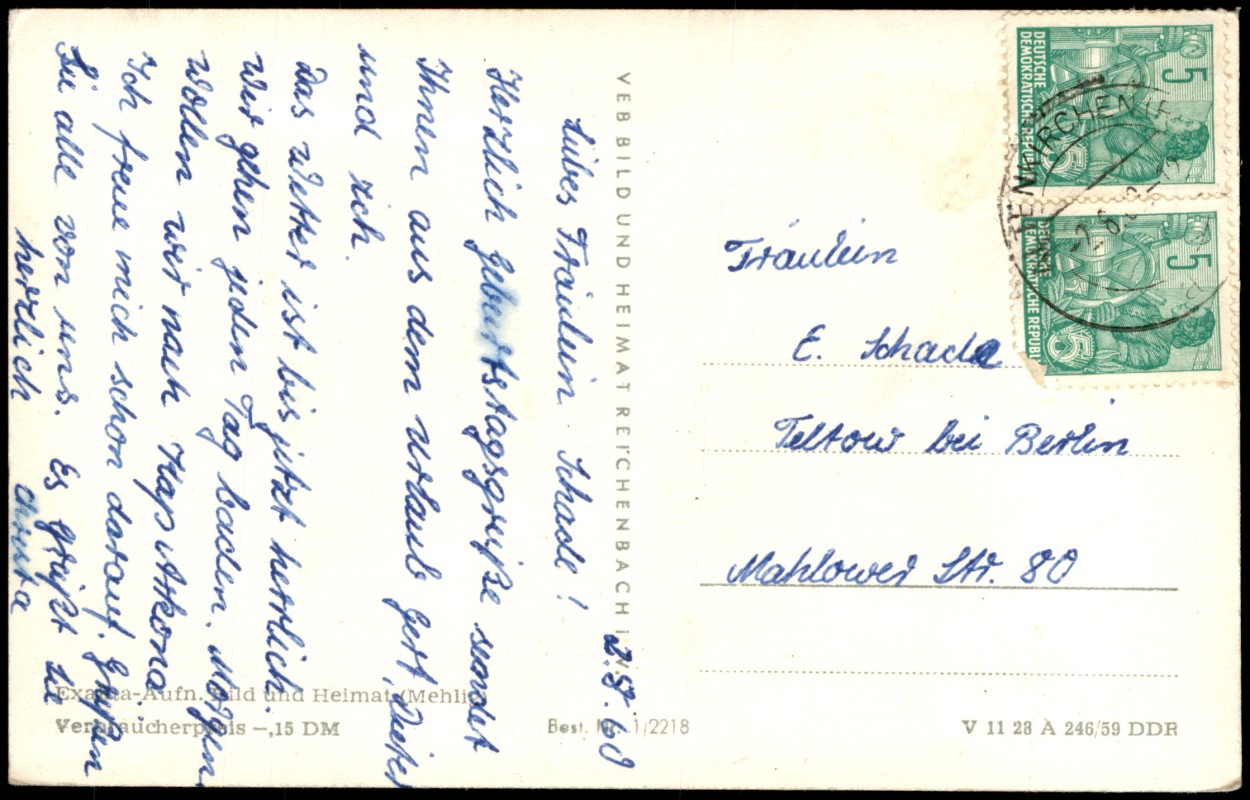 2.8.60
Liebes Fräulein Schade!
Herzlich Geburtstagsgrüße sendet
Ihnen aus dem Urlaub Gert, Dieter
und ich.
Das Wetter ist bis jetzt herrlich.
Wir gehen jeden Tag baden. Morgen
wollen wir nach Kap Arkona.
Ich freue mich schon darauf. Grüßen
Sie alle von uns. Es grüßt Sie
herzlich Christa
VEB BILD UND HEIMAT REICHENBACH I. V.
Fräulein
E. Schade
Teltow bei Berlin
Mahlower Str. 80
DEUTSCHE
DEMOKRATISCHE REPUBLIK
5
5
DEUTSCHE
DEMOKRATISCHE REPUBLIK
5
5
Exakta-Aufn. Bild und Heimat (Mehlig)
Verbraucherpreis -,15 DM
Best. Nr. 1/2218
V 11 28 A 246/59 DDR